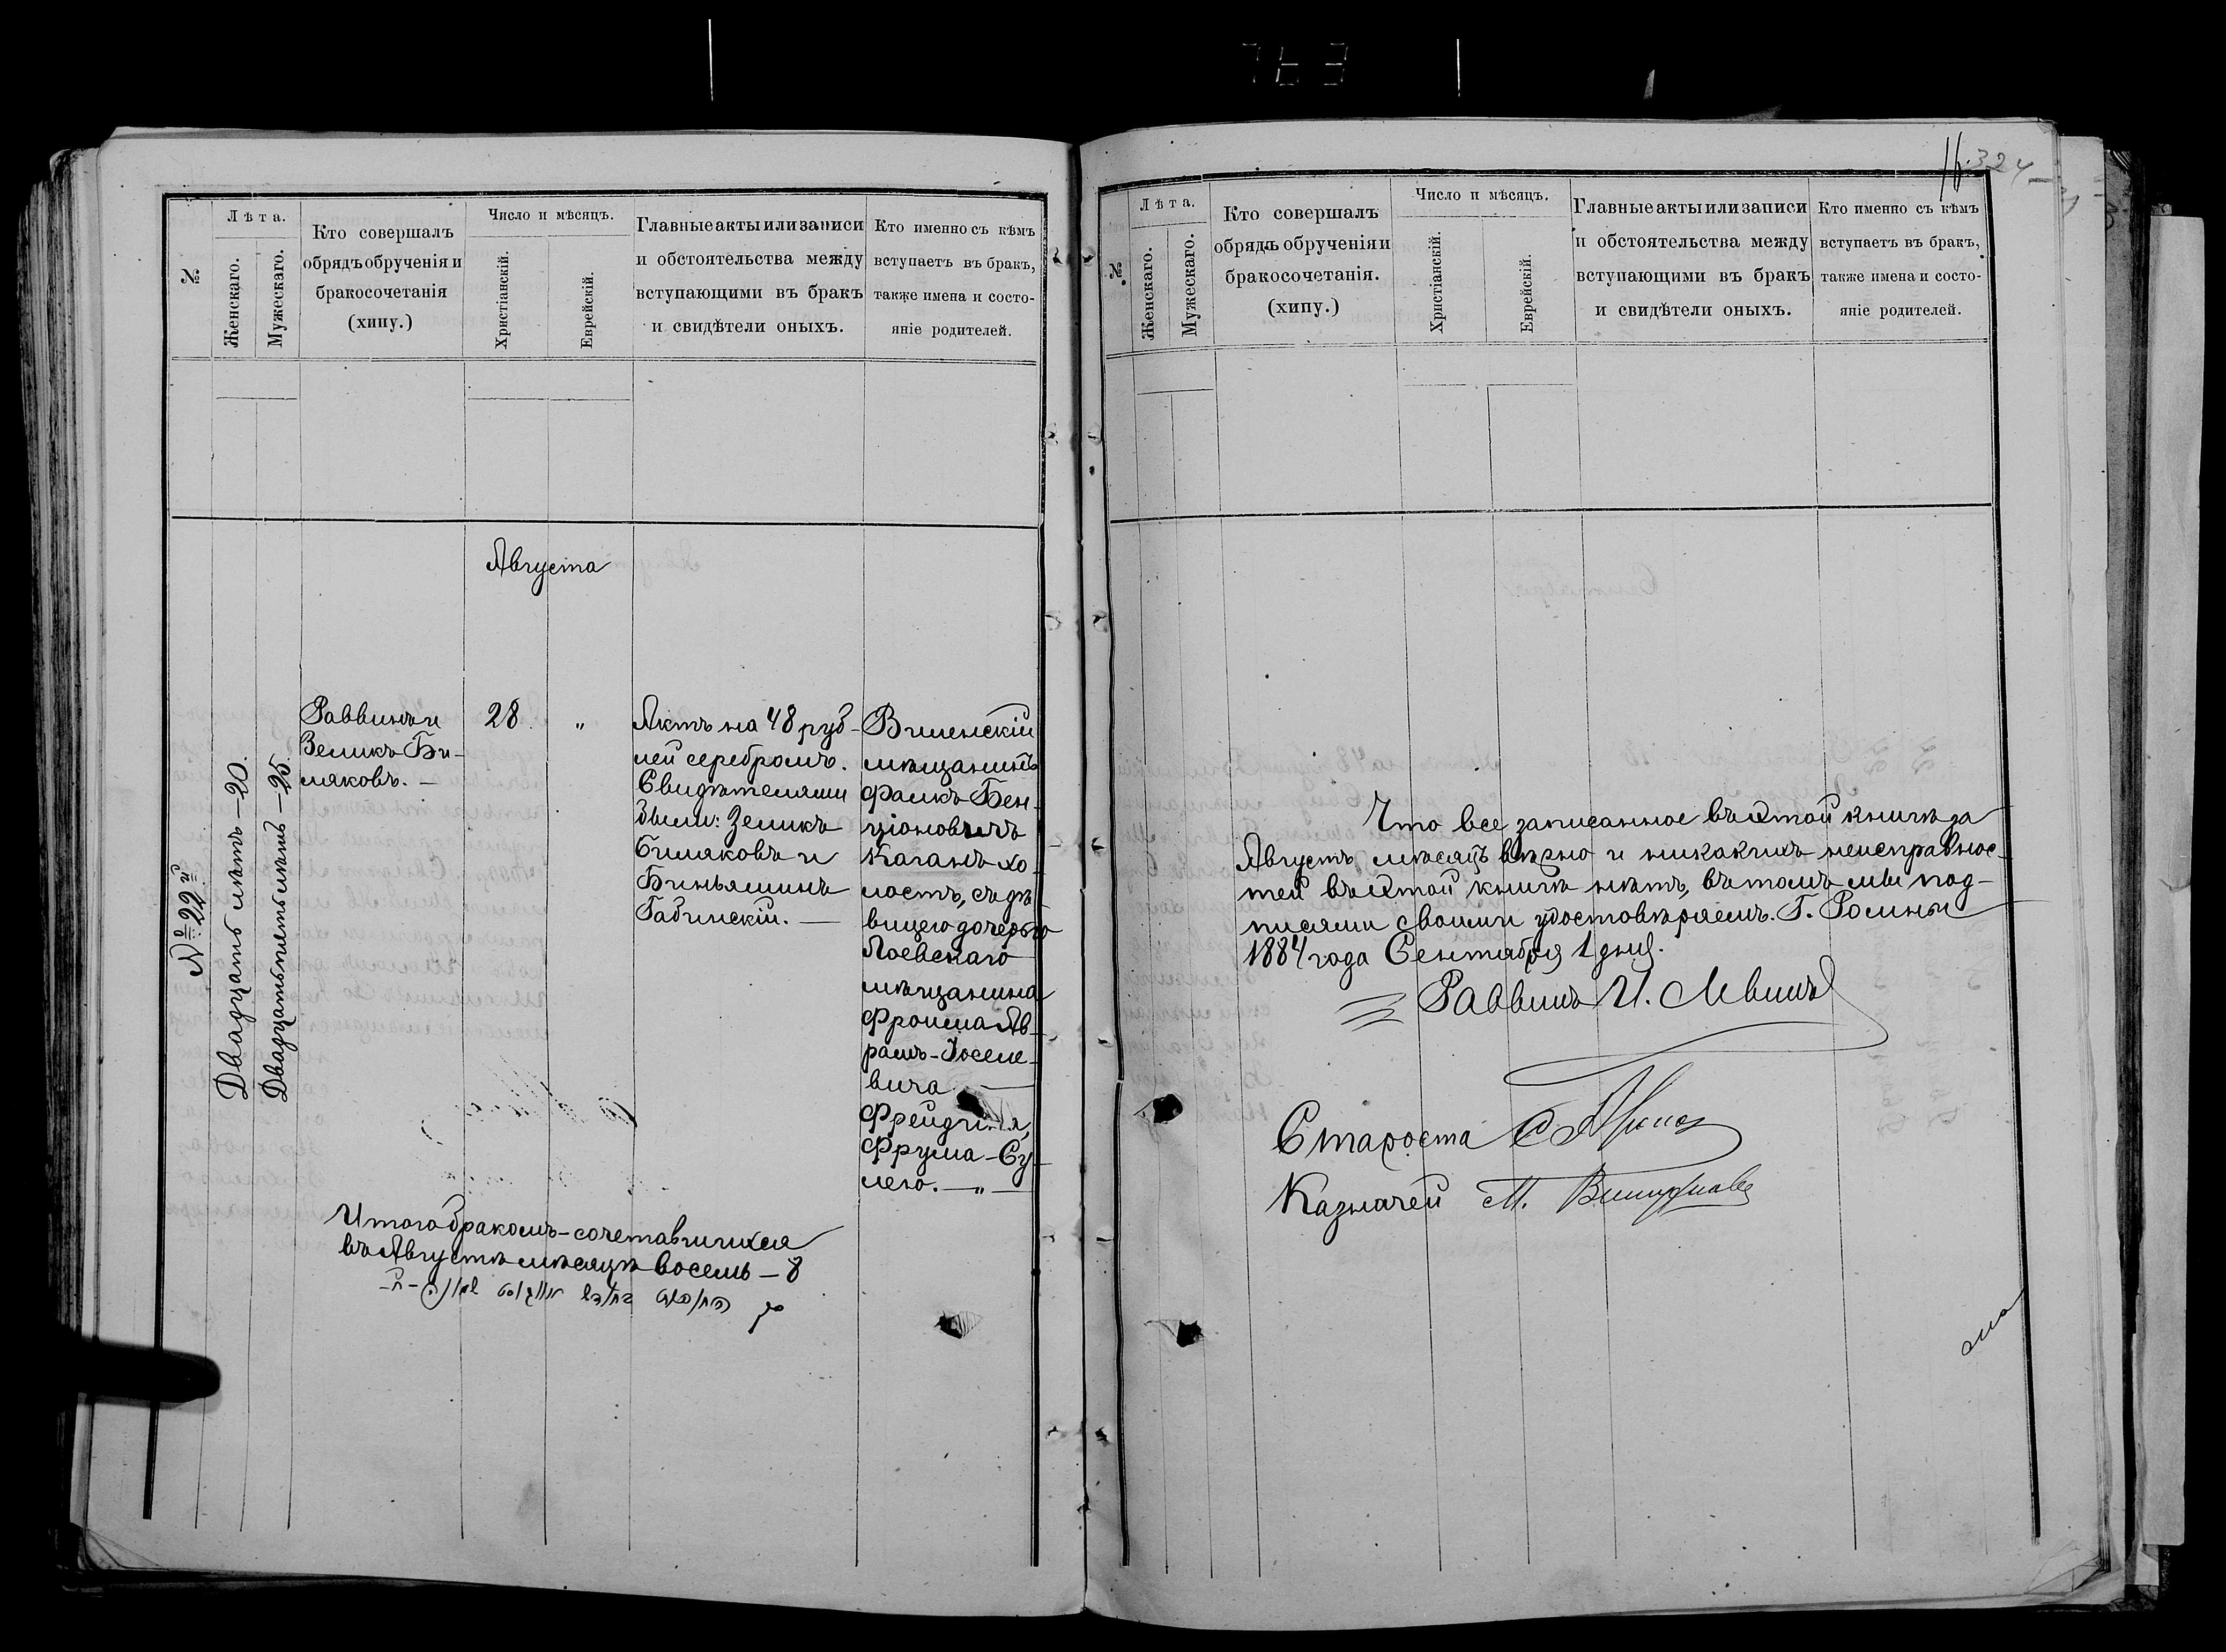 №
Лѣта.
Женскаго.
Мужескаго.
Кто совершалъ
обрядъ обрученія и
бракосочетанія
(хипу.)
Число и мѣсяцъ.
Христіанскій.
Еврейскій.
Главные акты или записи
и обстоятельства между
вступающими въ бракъ
и свидѣтели оныхъ.
Кто именно съ кѣмъ
вступаетъ въ бракъ,
также имена и состо-
яніе родителей.
Августа
№ 22й
Двадцать лѣтъ — 20.
Двадцать пять лѣтъ — 25
Раввинъ и
Зеликъ Би-
ляковъ. —
28
"
Актъ на 48 руб-
лей серебромъ.
Свидѣтелями
были: Зеликъ
Биляковъ и
Биньяминъ
Бабинскій. —
Виленскій
мѣщанинъ
Фалкъ Бен-
ціоновичъ
Каганъ хо-
лостъ, съ дѣ-
вицею дочерью
Лоевскаго
мѣщанина
Фроима Ав-
рамъ-Іоселе-
вича —
Фрума-Су-
лею. — " —
Итого бракомъ-сочетавшихся
въ Августѣ мѣсяцѣ восемь — 8
16.
324
№
Лѣта.
Женскаго.
Мужескаго.
Кто совершалъ
обрядъ обрученія и
бракосочетанія.
(хипу.)
Число и мѣсяцъ.
Христіанскій.
Еврейскій.
Главные акты или записи
и обстоятельства между
вступающими въ бракъ
и свидѣтели оныхъ.
Кто именно съ кѣмъ
вступаетъ въ бракъ,
также имена и состо-
яніе родителей.
Что все записанное въ этой книгѣ за
Августъ мѣсяцъ вѣрно и никакихъ неисправнос-
тей въ этой книгѣ нѣтъ, въ томъ мы под-
писями своими удостовѣряемъ. Г. Ромны
1884 года Сентября 1 дня.
Раввинъ И. Левинъ
Староста
Казначей М.